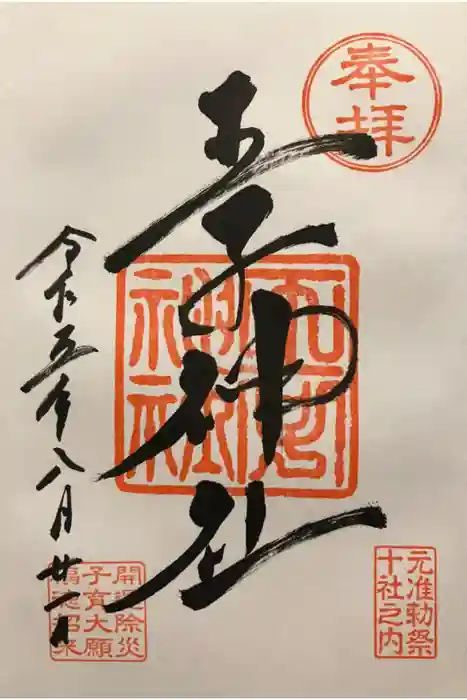 奉拝
王子神社
令和五年八月廿一日
元准勅祭
十社之内
開運除災
子育大願
福徳招来